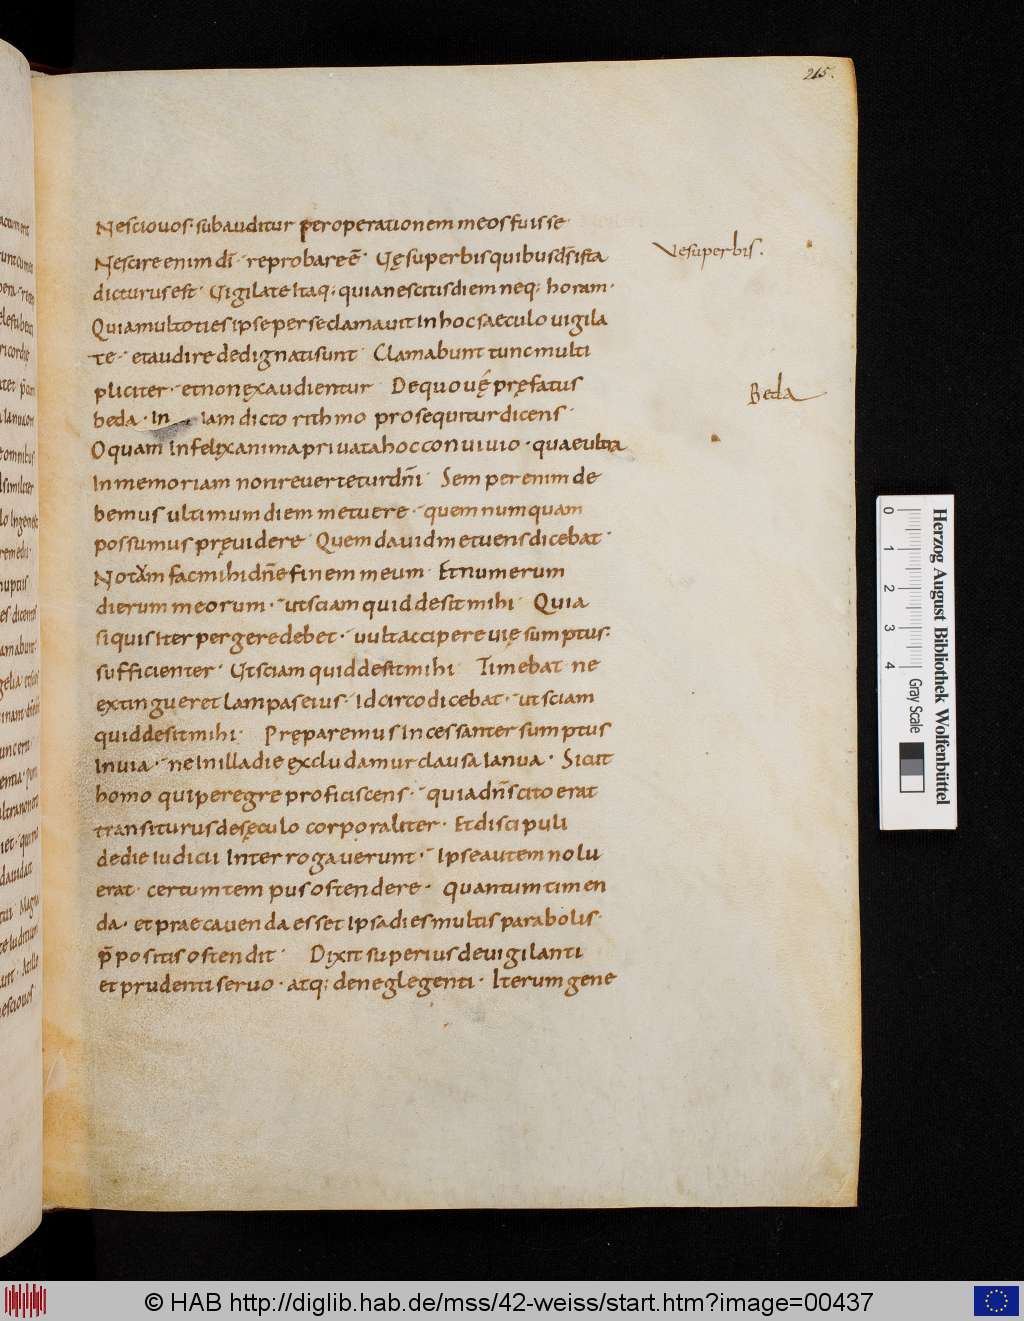 215.
Nescio uos · subauditur per operationem meos fuisse
Nescire enim dī · reprobare ē · Uę superbis quibus dn̄s ista
Ve superbis.
dicturus est · Uigilate Itaq; quia nescitis diem neq; horam ·
Quia multoties ipse per se clamauit In hoc saeculo uigila
te · et audire dedignati sunt Clamabunt tunc multi
pliciter · et non exaudientur De quo uę pręfatus
Beda
beda · In Iam dicto rithmo prosequitur dicens ·
O quam Infelix anima priuata hoc conuiuio · quae ultra
In memoriam non reuertetur dn̄i Semper enim de
bemus ultimum diem metuere · quem numquam
possumus pręuidere Quem dauid metuens dicebat ·
Notam fac mihi dn̄e finem meum Et numerum
dierum meorum · ut sciam quid desit mihi Quia
si quis Iter pergere debet · uult accipere uię sumptus ·
sufficienter · Ut sciam quid desit mihi Timebat ne
extingueret lampas eius · Idcirco dicebat · ut sciam
quid desit mihi · Pręparemus Incessanter sumptus
In uia · ne In illa die excludamur clausa Ianua · Sicut
homo qui peregre proficiscens · quia dn̄s cito erat
transiturus de sęculo corporaliter · Et discipuli
de die Iudicii Interrogauerunt · Ipse autem nolu
erat · certum tempus ostendere · quantum timen
da · et praecauenda esset Ipsa dies multis parabolis ·
p̄positis ostendit · Dixit superius de uigilanti
et prudenti seruo · atq; de neglegenti · Iterum gene
0 1 2 3 4
Herzog August Bibliothek Wolfenbüttel
Gray Scale
© HAB http://diglib.hab.de/mss/42-weiss/start.htm?image=00437